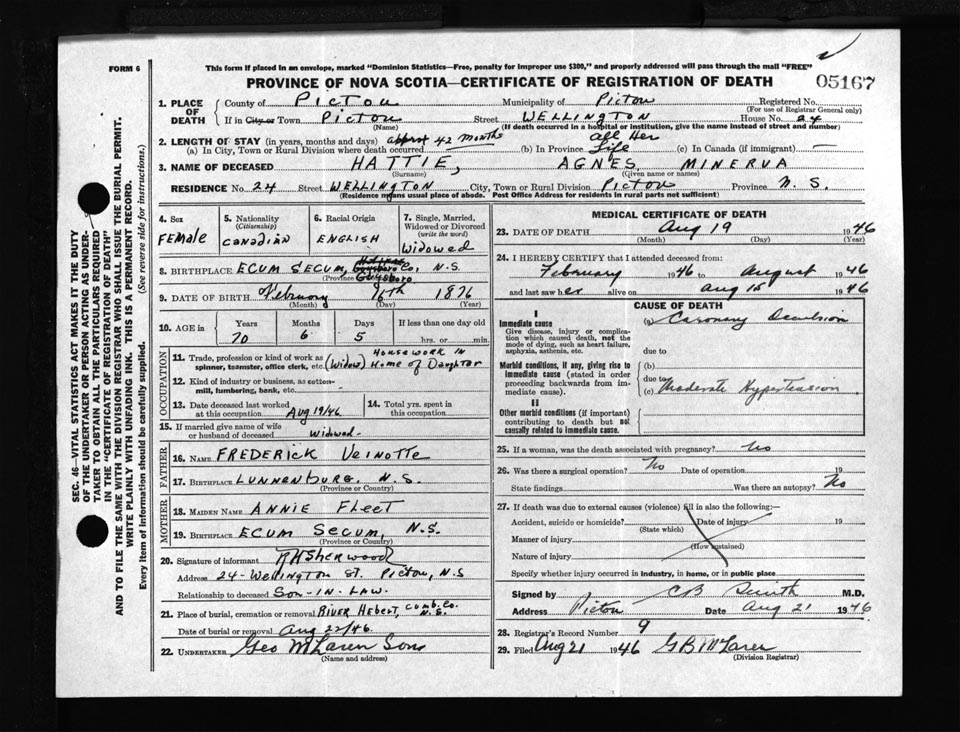 FORM 6
This form if placed in an envelope, marked "Dominion Statistics—Free, penalty for improper use $300," and properly addressed will pass through the mail "FREE"
PROVINCE OF NOVA SCOTIA—CERTIFICATE OF REGISTRATION OF DEATH
05167
1. PLACE OF DEATH { County of PICTOU Municipality of Pictou Registered No.
(For use of Registrar General only)
If in City or Town PICTOU Street WELLINGTON House No. 24
(Name) (If death occurred in a hospital or institution, give the name instead of street and number)
2. LENGTH OF STAY (in years, months and days)
(a) In City, Town or Rural Division where death occurred approx 42 months (b) In Province all Her Life (c) In Canada (if immigrant) —
3. NAME OF DECEASED HATTIE, AGNES MINERVA
(Surname) (Given name or names)
RESIDENCE No. 24 Street WELLINGTON City, Town or Rural Division Pictou Province N. S.
(Residence means usual place of abode. Post Office Address for residents in rural parts not sufficient)
4. Sex FEMale
5. Nationality (Citizenship) Canadian
6. Racial Origin ENGLISH
7. Single, Married, Widowed or Divorced (write the word) Widowed
8. BIRTHPLACE ECUM SECUM, Guysboro Co, N.S.
9. DATE OF BIRTH February 1876
(Month) (Day) (Year)
10. AGE in Years 70 Months 6 Days 5 If less than one day old hrs. or min.
OCCUPATION
11. Trade, profession or kind of work as spinner, teamster, office clerk, etc. (Widow) HOUSEWORK IN Home of Daughter
12. Kind of industry or business, as cotton-mill, lumbering, bank, etc.
13. Date deceased last worked at this occupation Aug 19/46
14. Total yrs. spent in this occupation
15. If married give name of wife or husband of deceased Widowed
FATHER
16. NAME FREDERICK VEINOTTE
17. BIRTHPLACE LUNNENBURG. N.S.
(Province or Country)
MOTHER
18. MAIDEN NAME ANNIE Fleet
19. BIRTHPLACE ECUM SECUM, N.S.
(Province or Country)
20. Signature of informant RHSherwood
Address 24-Wellington St. Pictou, N.S
Relationship to deceased Son-IN-LAW.
21. Place of burial, cremation or removal RIVER HEBERT, Cumb. Co. N.S.
Date of burial or removal Aug 22/46.
22. UNDERTAKER Geo McLaren Sons
(Name and address)
MEDICAL CERTIFICATE OF DEATH
23. DATE OF DEATH Aug 19 1946
(Month) (Day) (Year)
24. I HEREBY CERTIFY that I attended deceased from:
February 1946 to August 1946
and last saw her alive on Aug 15 1946
CAUSE OF DEATH
I
Immediate cause
Give disease, injury or complication which caused death, not the mode of dying, such as heart failure, asphyxia, asthenia, etc.
(a) Coronary Occulsion
due to
Morbid conditions, if any, giving rise to immediate cause (stated in order proceeding backwards from immediate cause).
(b)
due to
(c) Moderate Hypertension
II
Other morbid conditions (if important) contributing to death but not causally related to immediate cause.
25. If a woman, was the death associated with pregnancy? No
26. Was there a surgical operation? No Date of operation 19
State findings Was there an autopsy? No
27. If death was due to external causes (violence) fill in also the following:—
Accident, suicide or homicide? Date of injury 19
(State which)
Manner of injury
(How sustained)
Nature of injury
Specify whether injury occurred in industry, in home, or in public place
Signed by CB Smith M.D.
Address Pictou Date Aug 21 1946
28. Registrar's Record Number 9
29. Filed Aug 21 1946 GB McLaren
(Division Registrar)
SEC. 46—VITAL STATISTICS ACT MAKES IT THE DUTY
OF THE UNDERTAKER OR PERSON ACTING AS UNDER-
TAKER TO OBTAIN ALL THE PARTICULARS REQUIRED
IN THE "CERTIFICATE OF REGISTRATION OF DEATH"
AND TO FILE THE SAME WITH THE DIVISION REGISTRAR WHO SHALL ISSUE THE BURIAL PERMIT.
WRITE PLAINLY WITH UNFADING INK. THIS IS A PERMANENT RECORD.
Every item of Information should be carefully supplied. (See reverse side for instructions.)